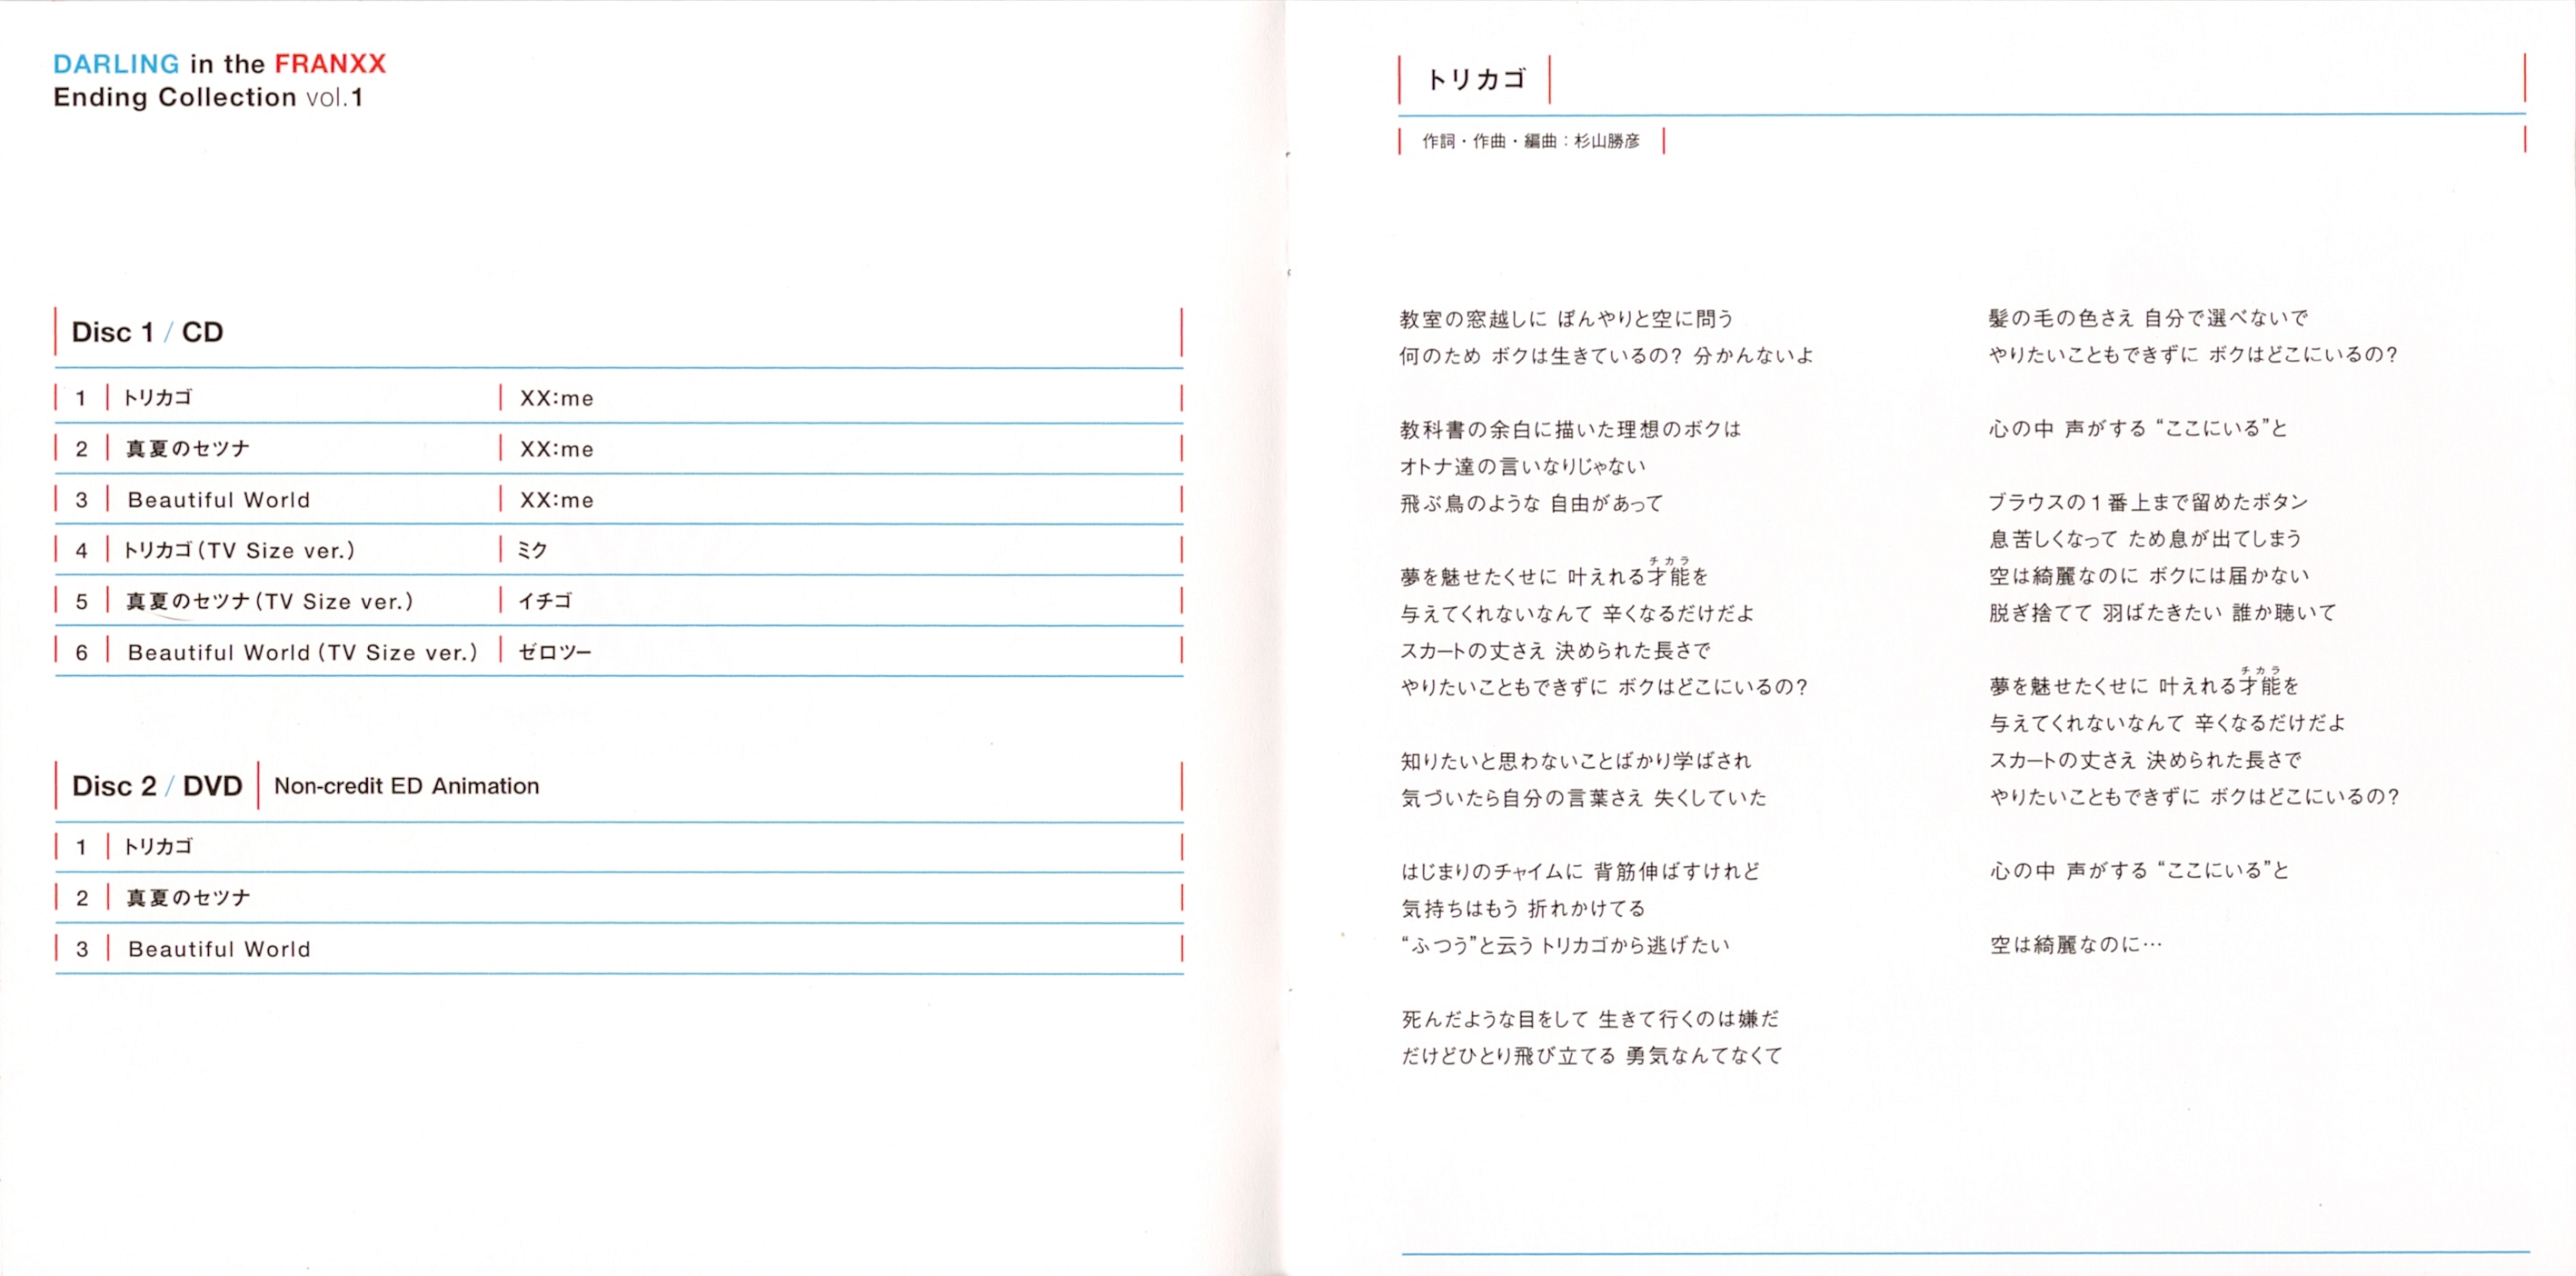 DARLING in the FRANXX
Ending Collection vol.1
Disc 1 / CD
1 トリカゴ XX:me
2 真夏のセツナ XX:me
3 Beautiful World XX:me
4 トリカゴ(TV Size ver.) ミク
5 真夏のセツナ(TV Size ver.) イチゴ
6 Beautiful World(TV Size ver.) ゼロツー
Disc 2 / DVD Non-credit ED Animation
1 トリカゴ
2 真夏のセツナ
3 Beautiful World
トリカゴ
作詞・作曲・編曲:杉山勝彦
教室の窓越しに ぼんやりと空に問う
何のため ボクは生きているの? 分かんないよ
教科書の余白に描いた理想のボクは
オトナ達の言いなりじゃない
飛ぶ鳥のような 自由があって
チカラ
夢を魅せたくせに 叶えれる才能を
与えてくれないなんて 辛くなるだけだよ
スカートの丈さえ 決められた長さで
やりたいこともできずに ボクはどこにいるの?
知りたいと思わないことばかり学ばされ
気づいたら自分の言葉さえ 失くしていた
はじまりのチャイムに 背筋伸ばすけれど
気持ちはもう 折れかけてる
“ふつう”と云うトリカゴから逃げたい
死んだような目をして 生きて行くのは嫌だ
だけどひとり飛び立てる 勇気なんてなくて
髪の毛の色さえ 自分で選べないで
やりたいこともできずに ボクはどこにいるの?
心の中 声がする “ここにいる”と
ブラウスの1番上まで留めたボタン
息苦しくなって ため息が出てしまう
空は綺麗なのに ボクには届かない
脱ぎ捨てて 羽ばたきたい 誰か聴いて
チカラ
夢を魅せたくせに 叶えれる才能を
与えてくれないなんて 辛くなるだけだよ
スカートの丈さえ 決められた長さで
やりたいこともできずに ボクはどこにいるの?
心の中 声がする “ここにいる”と
空は綺麗なのに…